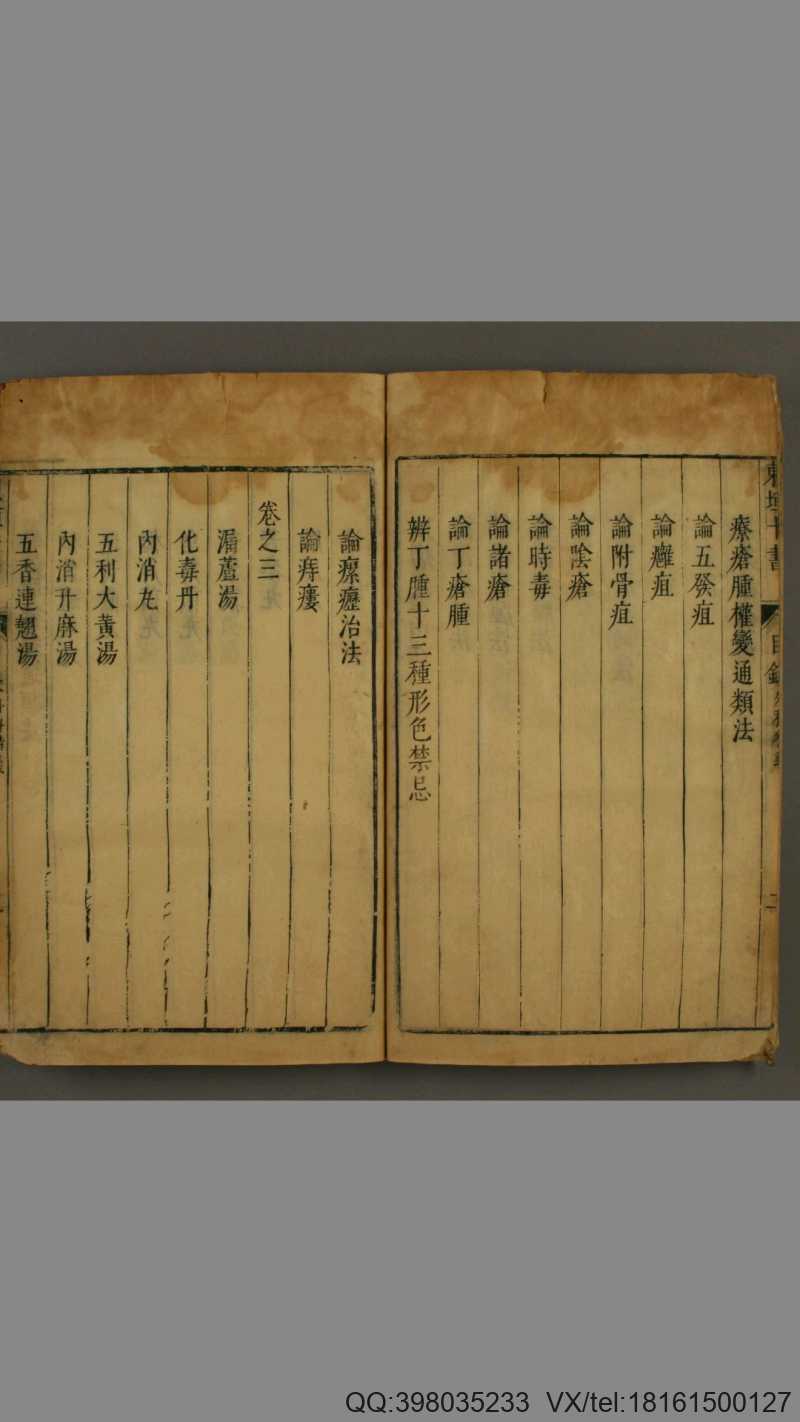 東垣十書
目錄
二
療瘡腫權變通類法
論五發疽
論癰疽
論附骨疽
論陰瘡
論時毒
論諸瘡
論丁瘡腫
辨丁腫十三種形色禁忌
論瘰癧治法
論痔瘻
卷之三
漏蘆湯
化毒丹
內消丸
五利大黃湯
內消升麻湯
五香連翹湯
QQ:398035233 VX/tel:18161500127